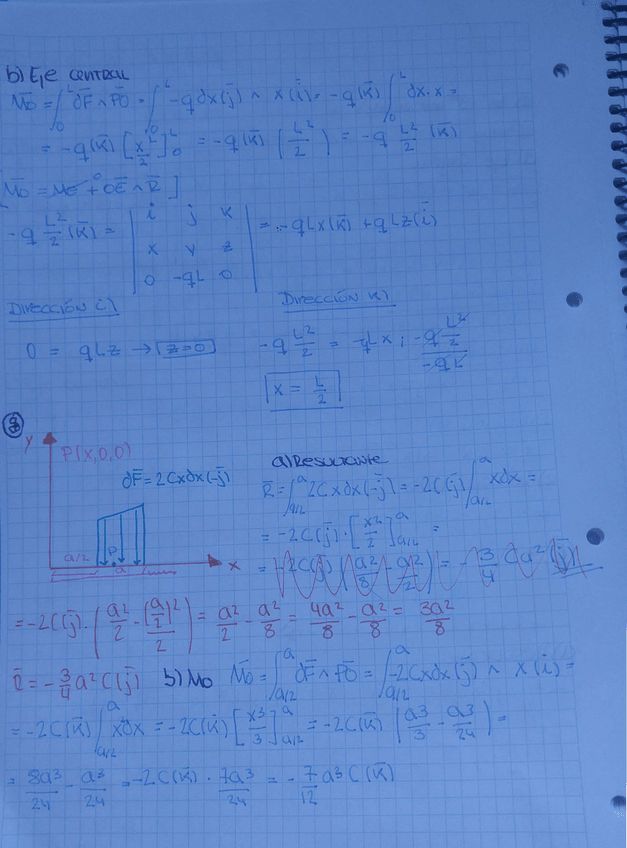 b) Eje central
M̄o = ∫₀ᴸ dF̄ ∧ P̄O = ∫₀ᴸ -qdx(j̄) ∧ x(ī) = -q(k̄) ∫₀ᴸ dx·x =
= -q(k̄) [x²/2]₀ᴸ = -q(k̄) (L²/2) = -q L²/2 (k̄)
M̄o = M̄E + ŌE ∧ R̄ ]
-q L²/2 (k̄) = | i j k | x y z | 0 -qL 0 | = -qLx(k̄) + qLz(ī)
Dirección i)
Dirección k)
0 = qLz → z=0
-q L²/2 = -qLx ; -q L²/2 / -qL
x = L/2
8
y
P(x,0,0)
dF̄ = 2Cxdx(-j̄)
a/2
P
a
x
a) Resultante
R̄ = ∫ₐ/₂ᵃ 2Cxdx(-j̄) = -2C(j̄) ∫ₐ/₂ᵃ xdx =
= -2C(j̄) · [x²/2]ₐ/₂ᵃ =
= -2C(j̄) = - 3/4 Ca² (j̄)
= -2C(j̄) · (a²/2 - (a/2)²/2) = a²/2 - a²/8 = 4a²/8 - a²/8 = 3a²/8
R̄ = -3/4 a² C(j̄)
b) Mo M̄o = ∫ₐ/₂ᵃ dF̄ ∧ P̄O = ∫ₐ/₂ᵃ -2Cxdx(j̄) ∧ x(ī) =
= -2C(k̄) ∫ₐ/₂ᵃ x²dx = -2C(k̄) [x³/3]ₐ/₂ᵃ = -2C(k̄) (a³/3 - a³/24) =
= 8a³/24 - a³/24 = -2C(k̄) · 7a³/24 = - 7/12 a³ C(k̄)